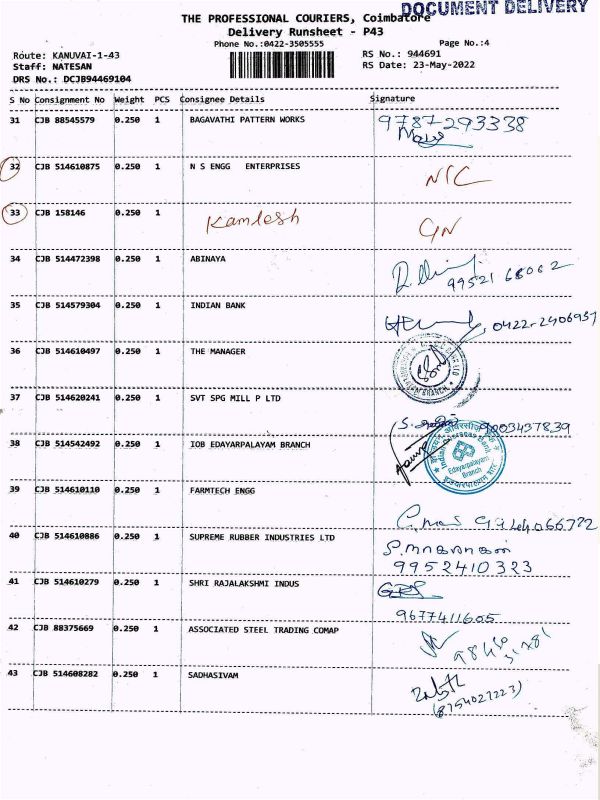 DOCUMENT DELIVERY
THE PROFESSIONAL COURIERS, Coimbatore
Delivery Runsheet - P43
Phone No.:0422-3505555
Page No.:4
Route: KANUVAI-1-43
RS No.: 944691
Staff: NATESAN
RS Date: 23-May-2022
DRS No.: DCJB94469104
S No Consignment No Weight PCS Consignee Details Signature
31 CJB 88545579 0.250 1 BAGAVATHI PATTERN WORKS 9787293338
32 CJB 514610875 0.250 1 N S ENGG ENTERPRISES
33 CJB 158146 0.250 1 Kamlesh
34 CJB 514472398 0.250 1 ABINAYA
35 CJB 514579304 0.250 1 INDIAN BANK
36 CJB 514610497 0.250 1 THE MANAGER
37 CJB 514620241 0.250 1 SVT SPG MILL P LTD
9003437839
38 CJB 514542492 0.250 1 IOB EDAYARPALAYAM BRANCH
Indian Overseas Bank
Edayarpalayam
Branch
39 CJB 514610110 0.250 1 FARMTECH ENGG
40 CJB 514610886 0.250 1 SUPREME RUBBER INDUSTRIES LTD
9952410323
41 CJB 514610279 0.250 1 SHRI RAJALAKSHMI INDUS
9677411605
42 CJB 88375669 0.250 1 ASSOCIATED STEEL TRADING COMAP
43 CJB 514608282 0.250 1 SADHASIVAM
(8754027223)